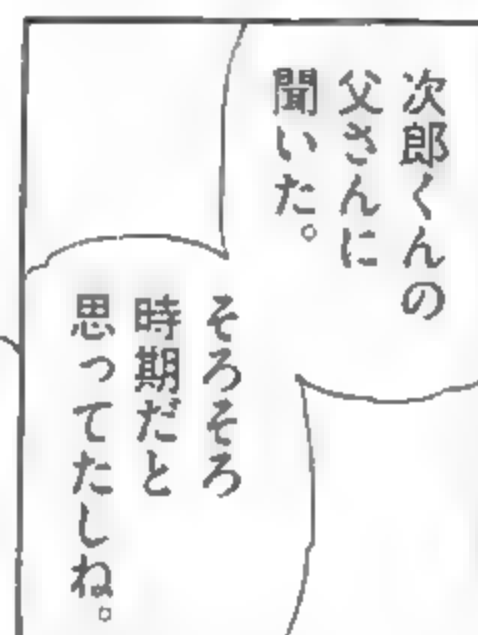 次郎くんの
父さんに
聞いた。
そろそろ
時期だと
思ってたしね。